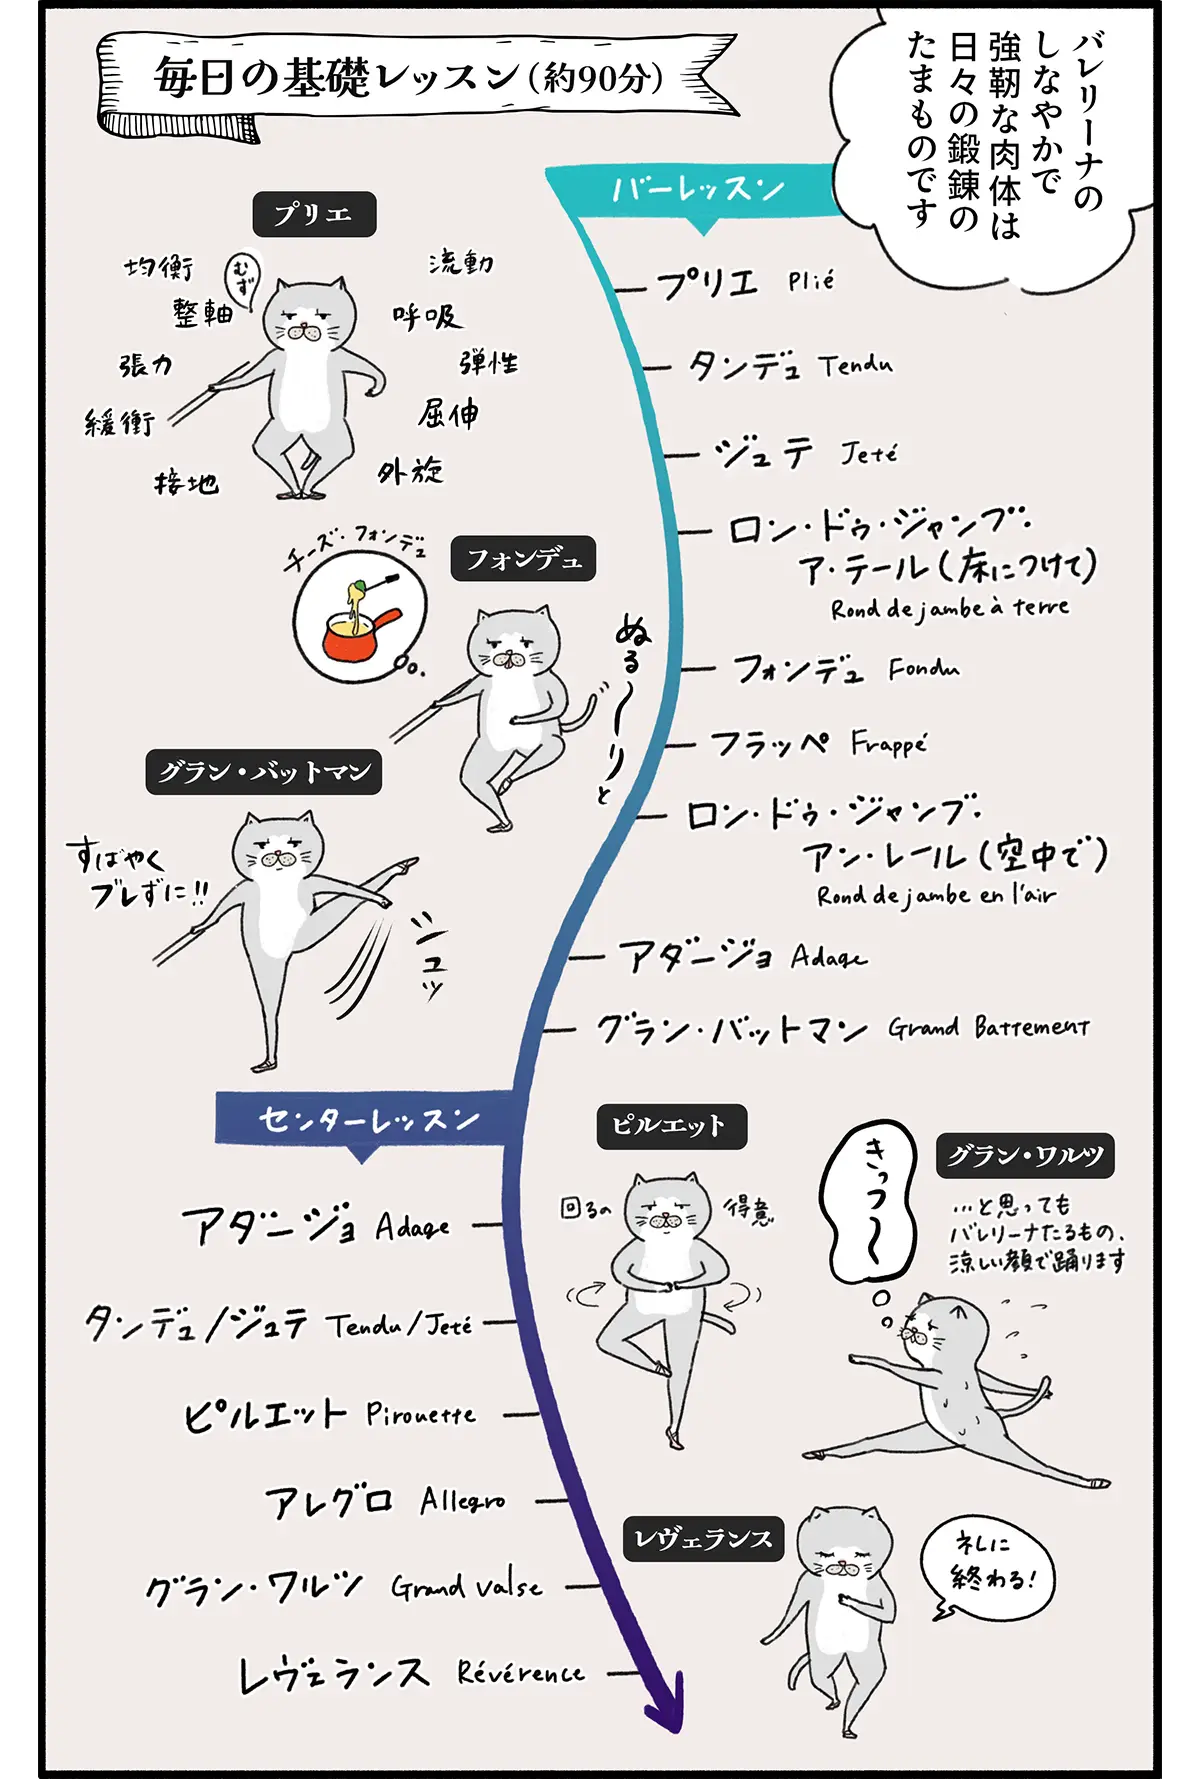 バレリーナの
しなやかで
強靭な肉体は
日々の鍛錬の
たまものです
毎日の基礎レッスン(約90分)
バーレッスン
プリエ Plié
タンデュ Tendu
ジュテ Jeté
ロン・ドゥ・ジャンブ・
ア・テール(床につけて)
Rond de jambe à terre
フォンデュ Fondu
フラッペ Frappé
ロン・ドゥ・ジャンブ・
アン・レール(空中で)
Rond de jambe en l'air
アダージョ Adage
グラン・バットマン Grand Battement
プリエ
均衡
むず
流動
整軸
呼吸
張力
弾性
緩衝
屈伸
接地
外旋
チーズ・フォンデュ
フォンデュ
ぬる〜〜りと
グラン・バットマン
すばやく
ブレずに!!
シュッ
センターレッスン
アダージョ Adage
タンデュ/ジュテ Tendu/Jeté
ピルエット Pirouette
アレグロ Allegro
グラン・ワルツ Grand valse
レヴェランス Révérence
ピルエット
回るの
得意
グラン・ワルツ
きっつ〜〜
…と思っても
バレリーナたるもの、
涼しい顔で踊ります
レヴェランス
礼に
終わる!